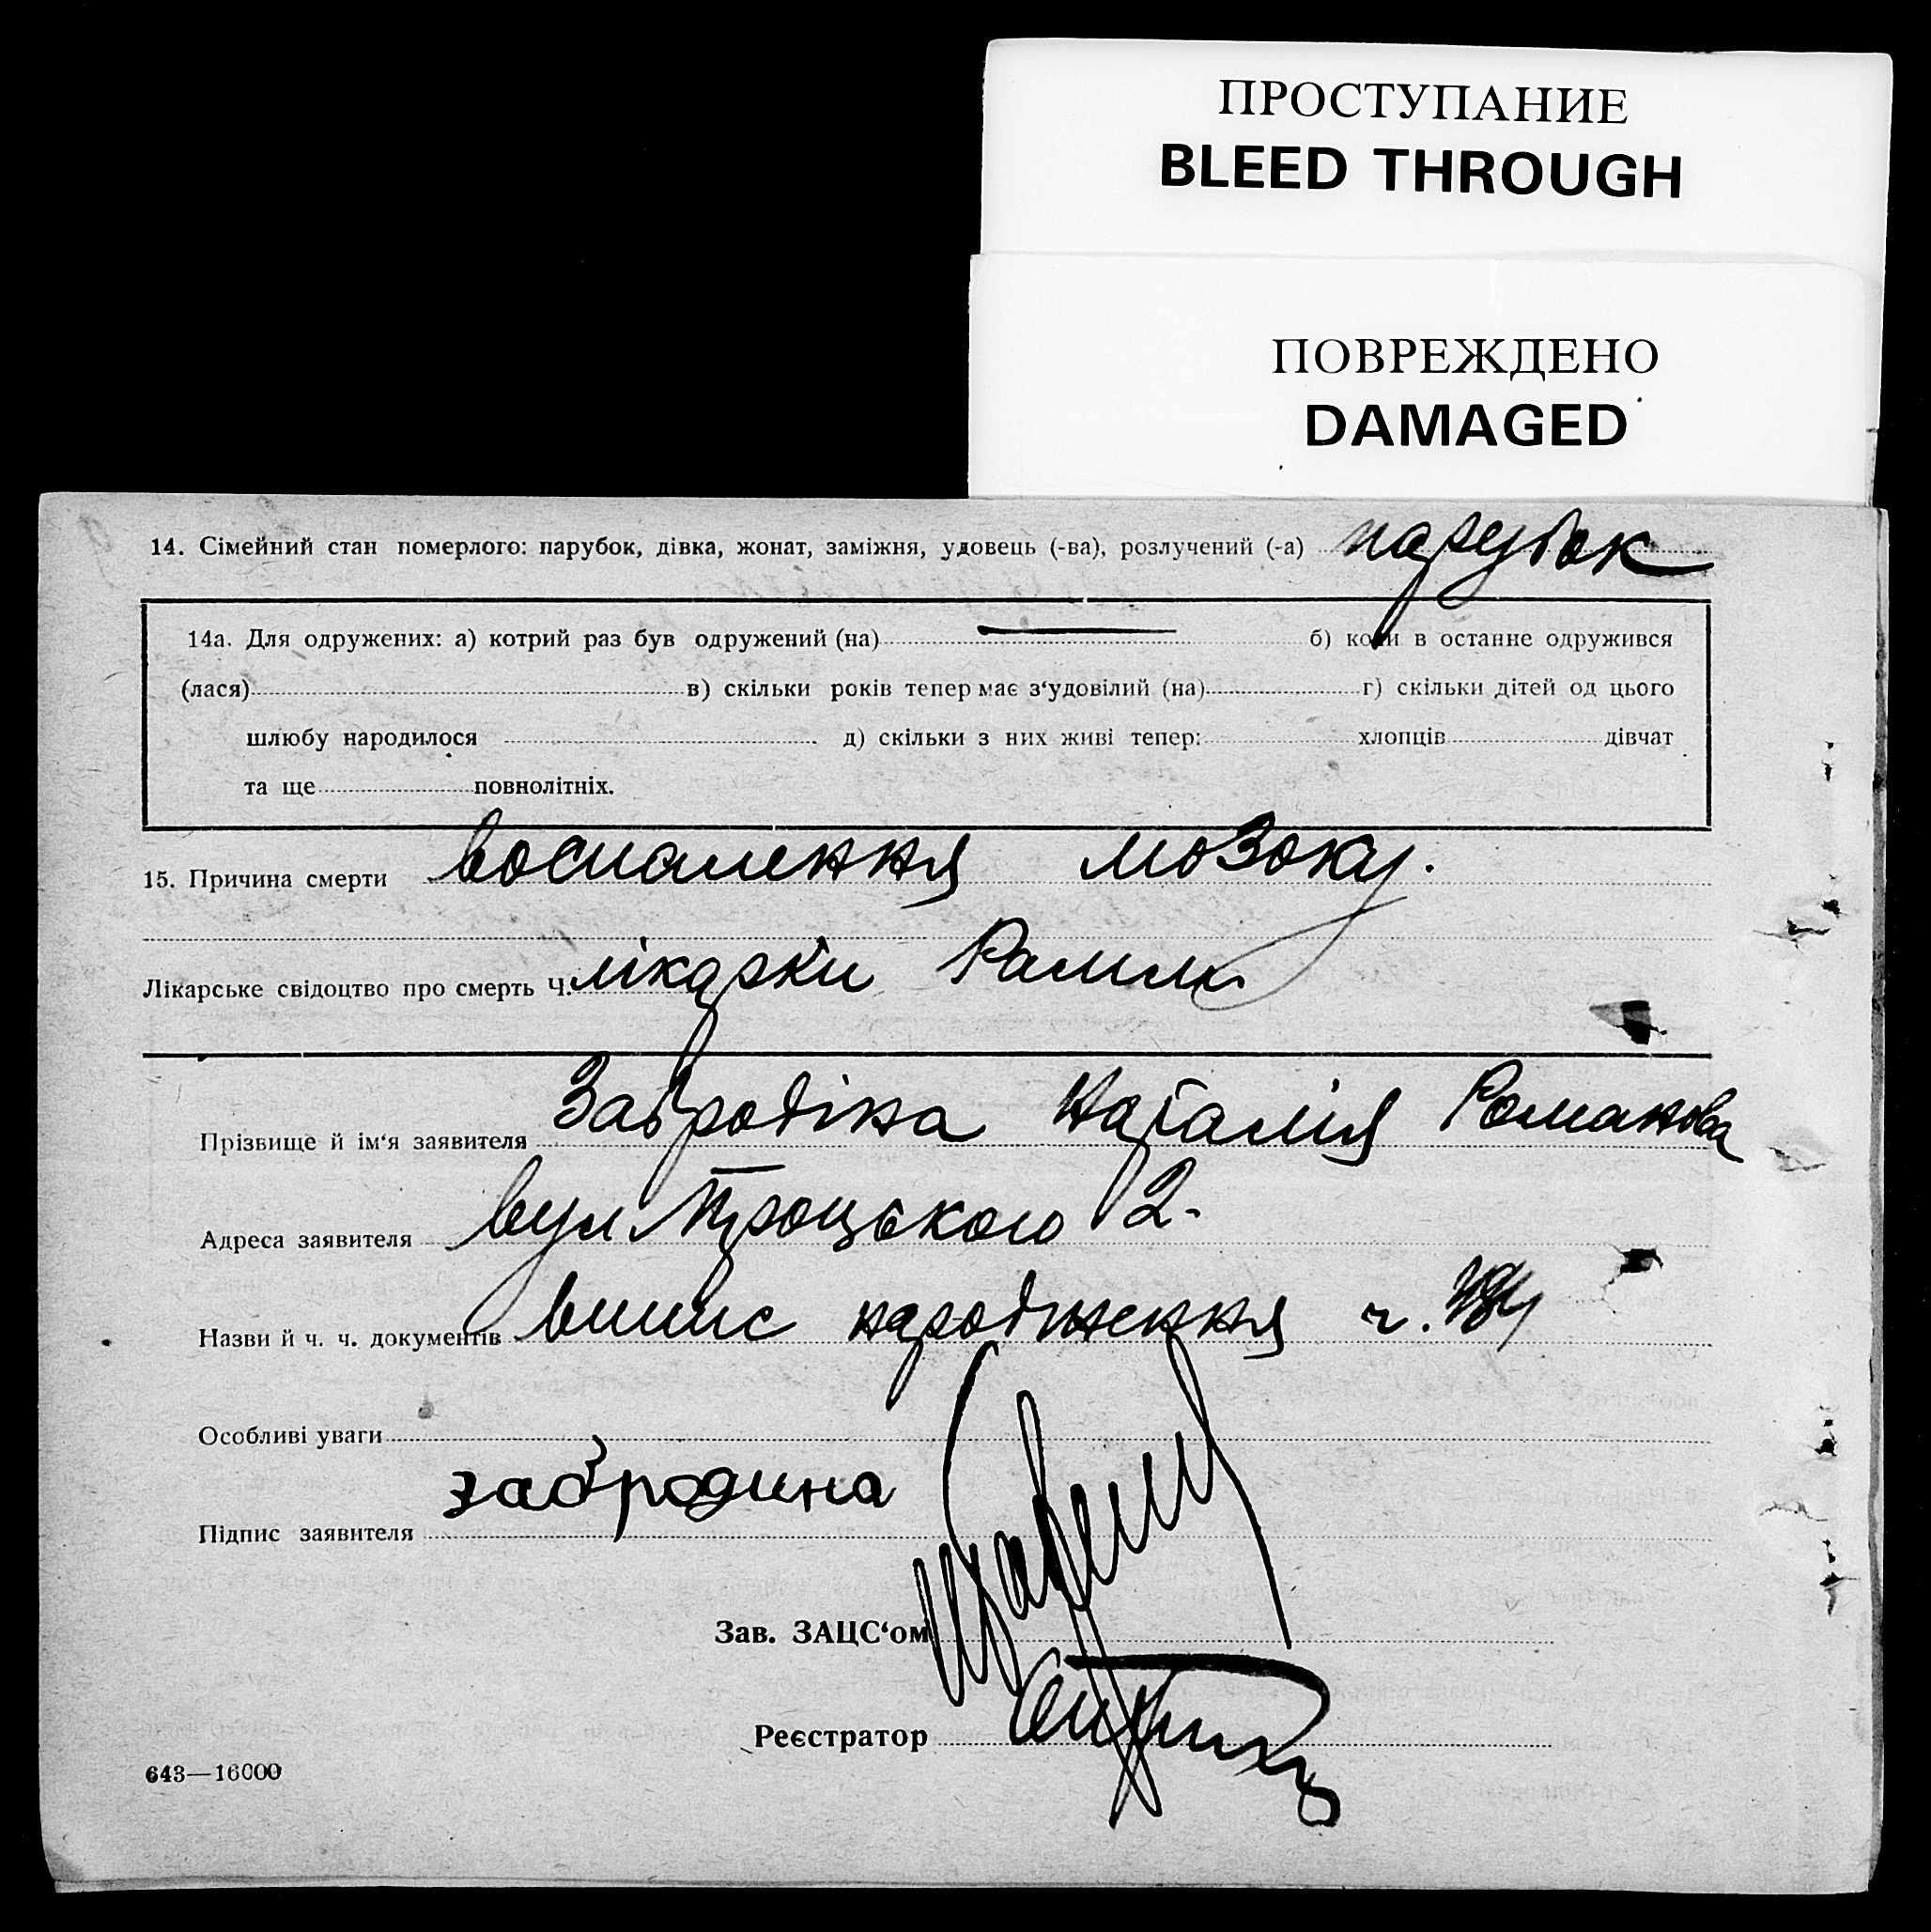 ПРОСТУПАНИЕ
BLEED THROUGH
ПОВРЕЖДЕНО
DAMAGED
14. Сімейний стан померлого: парубок, дівка, жонат, заміжня, удовець (-ва), розлучений (-а) парубок
14а. Для одружених: а) котрий раз був одружений (на) — б) коли в останне одружився
(лася) в) скільки років тепер має з‘удовілий (на) г) скільки дітей од цього
шлюбу народилося д) скільки з них живі тепер: хлопців дівчат
та ще повнолітніх.
15. Причина смерти воспалення мозоку.
Лікарське свідоцтво про смерть Ч. лікарки
Прізвище й ім‘я заявителя Забродіна Наталія Романова
Адреса заявителя вул Троцького 2.
Назви й ч. ч. документів випис народження ч.
Особливі уваги
Підпис заявителя забродина
Зав. ЗАЦС‘ом
Реєстратор
643—16000